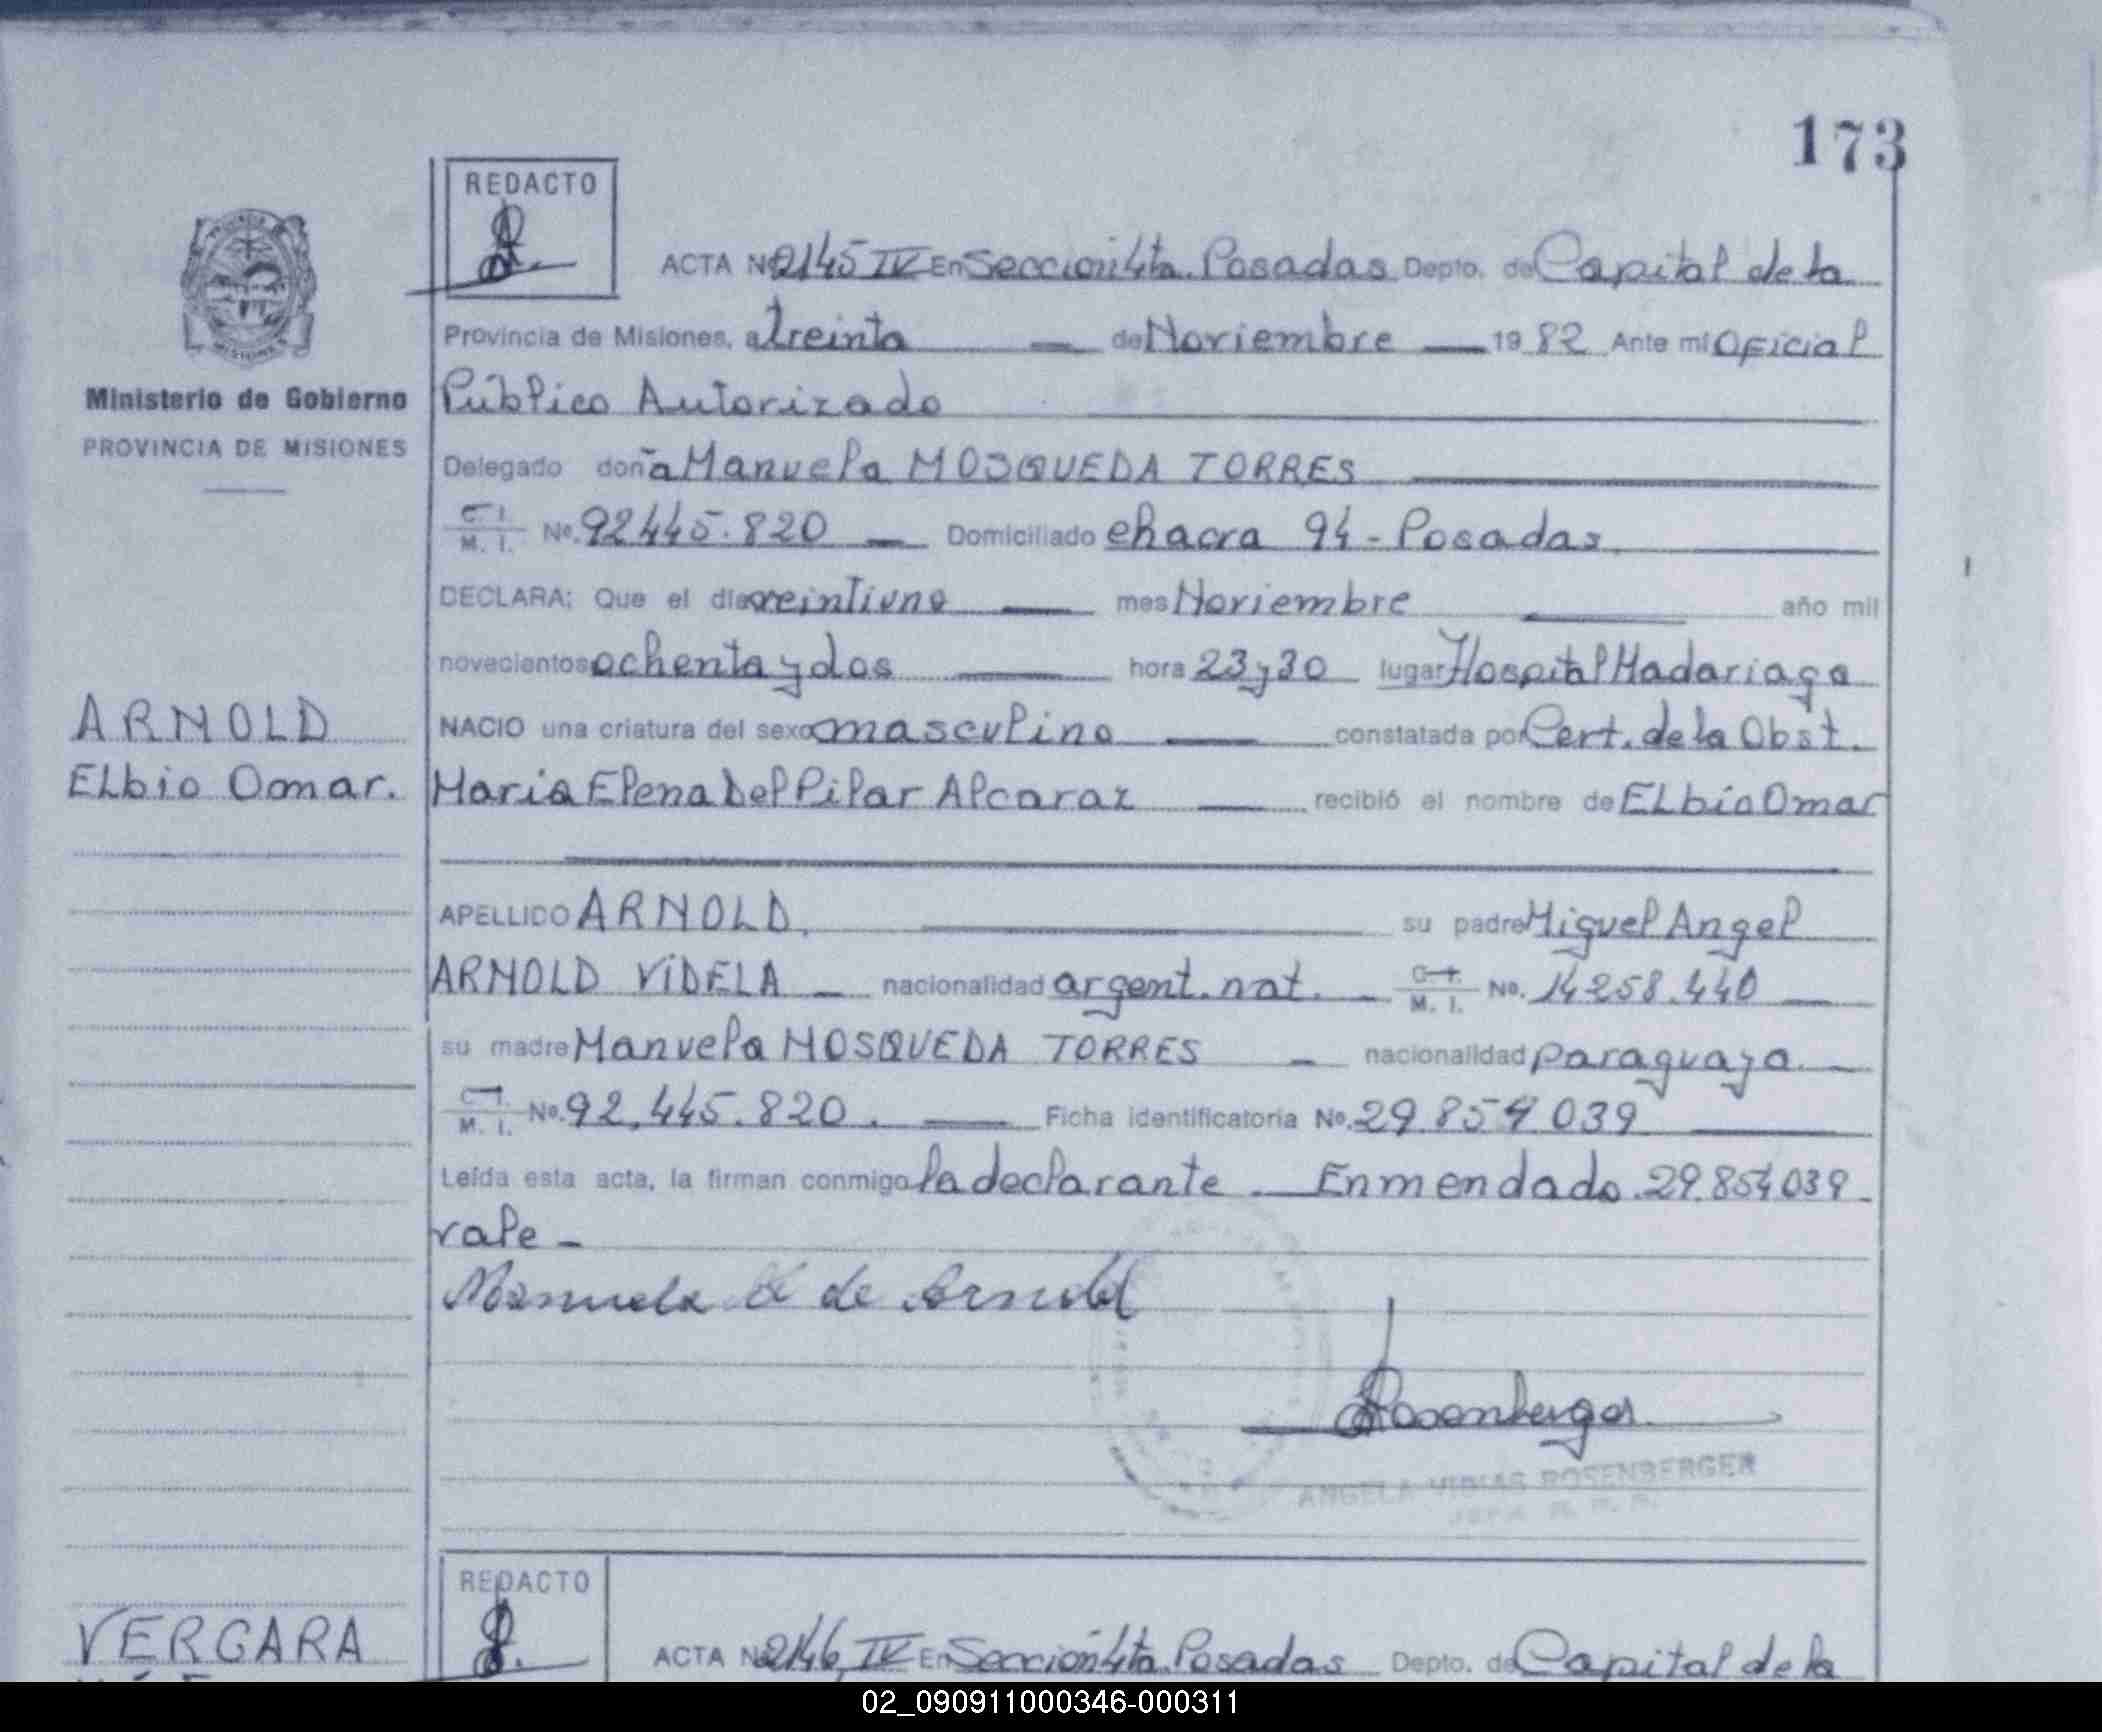 173
REDACTO
ACTA Nº 2145 IV En Sección 4ta. Posadas Depto. de Capital de la
Provincia de Misiones, a treinta de Noviembre 1982 Ante mi Oficial
Público Autorizado
Delegado doña Manuela MOSQUEDA TORRES
C. I. M. I. No. 92445.820 Domiciliado chacra 94 - Posadas
DECLARA; Que el día veintiuno mes Noviembre año mil
novecientos ochenta y dos hora 23 y 30 lugar Hospital Madariaga
NACIO una criatura del sexo masculino constatada por Cert. de la Obst.
Maria Elena Del Pilar Alcaraz recibió el nombre de ELbio Omar
APELLIDO ARNOLD su padre Miguel Angel
ARNOLD VIDELA nacionalidad argent. nat. C. I. M. I. No. 14258.440
su madre Manuela MOSQUEDA TORRES nacionalidad paraguaya
C. I. M. I. No. 92.445.820. Ficha identificatoria No. 29.854039
Leída esta acta, la firman conmigo la declarante. Enmendado. 29.854039
vale -
Manuela de Arnold
Rosenberger
ANGELA ROSENBERGER
Ministerio de Gobierno
PROVINCIA DE MISIONES
ARNOLD
ELbio Omar.
VERGARA
REDACTO
ACTA Nº 2146 IV En Sección 4ta. Posadas Depto. de Capital de la
02_090911000346-000311